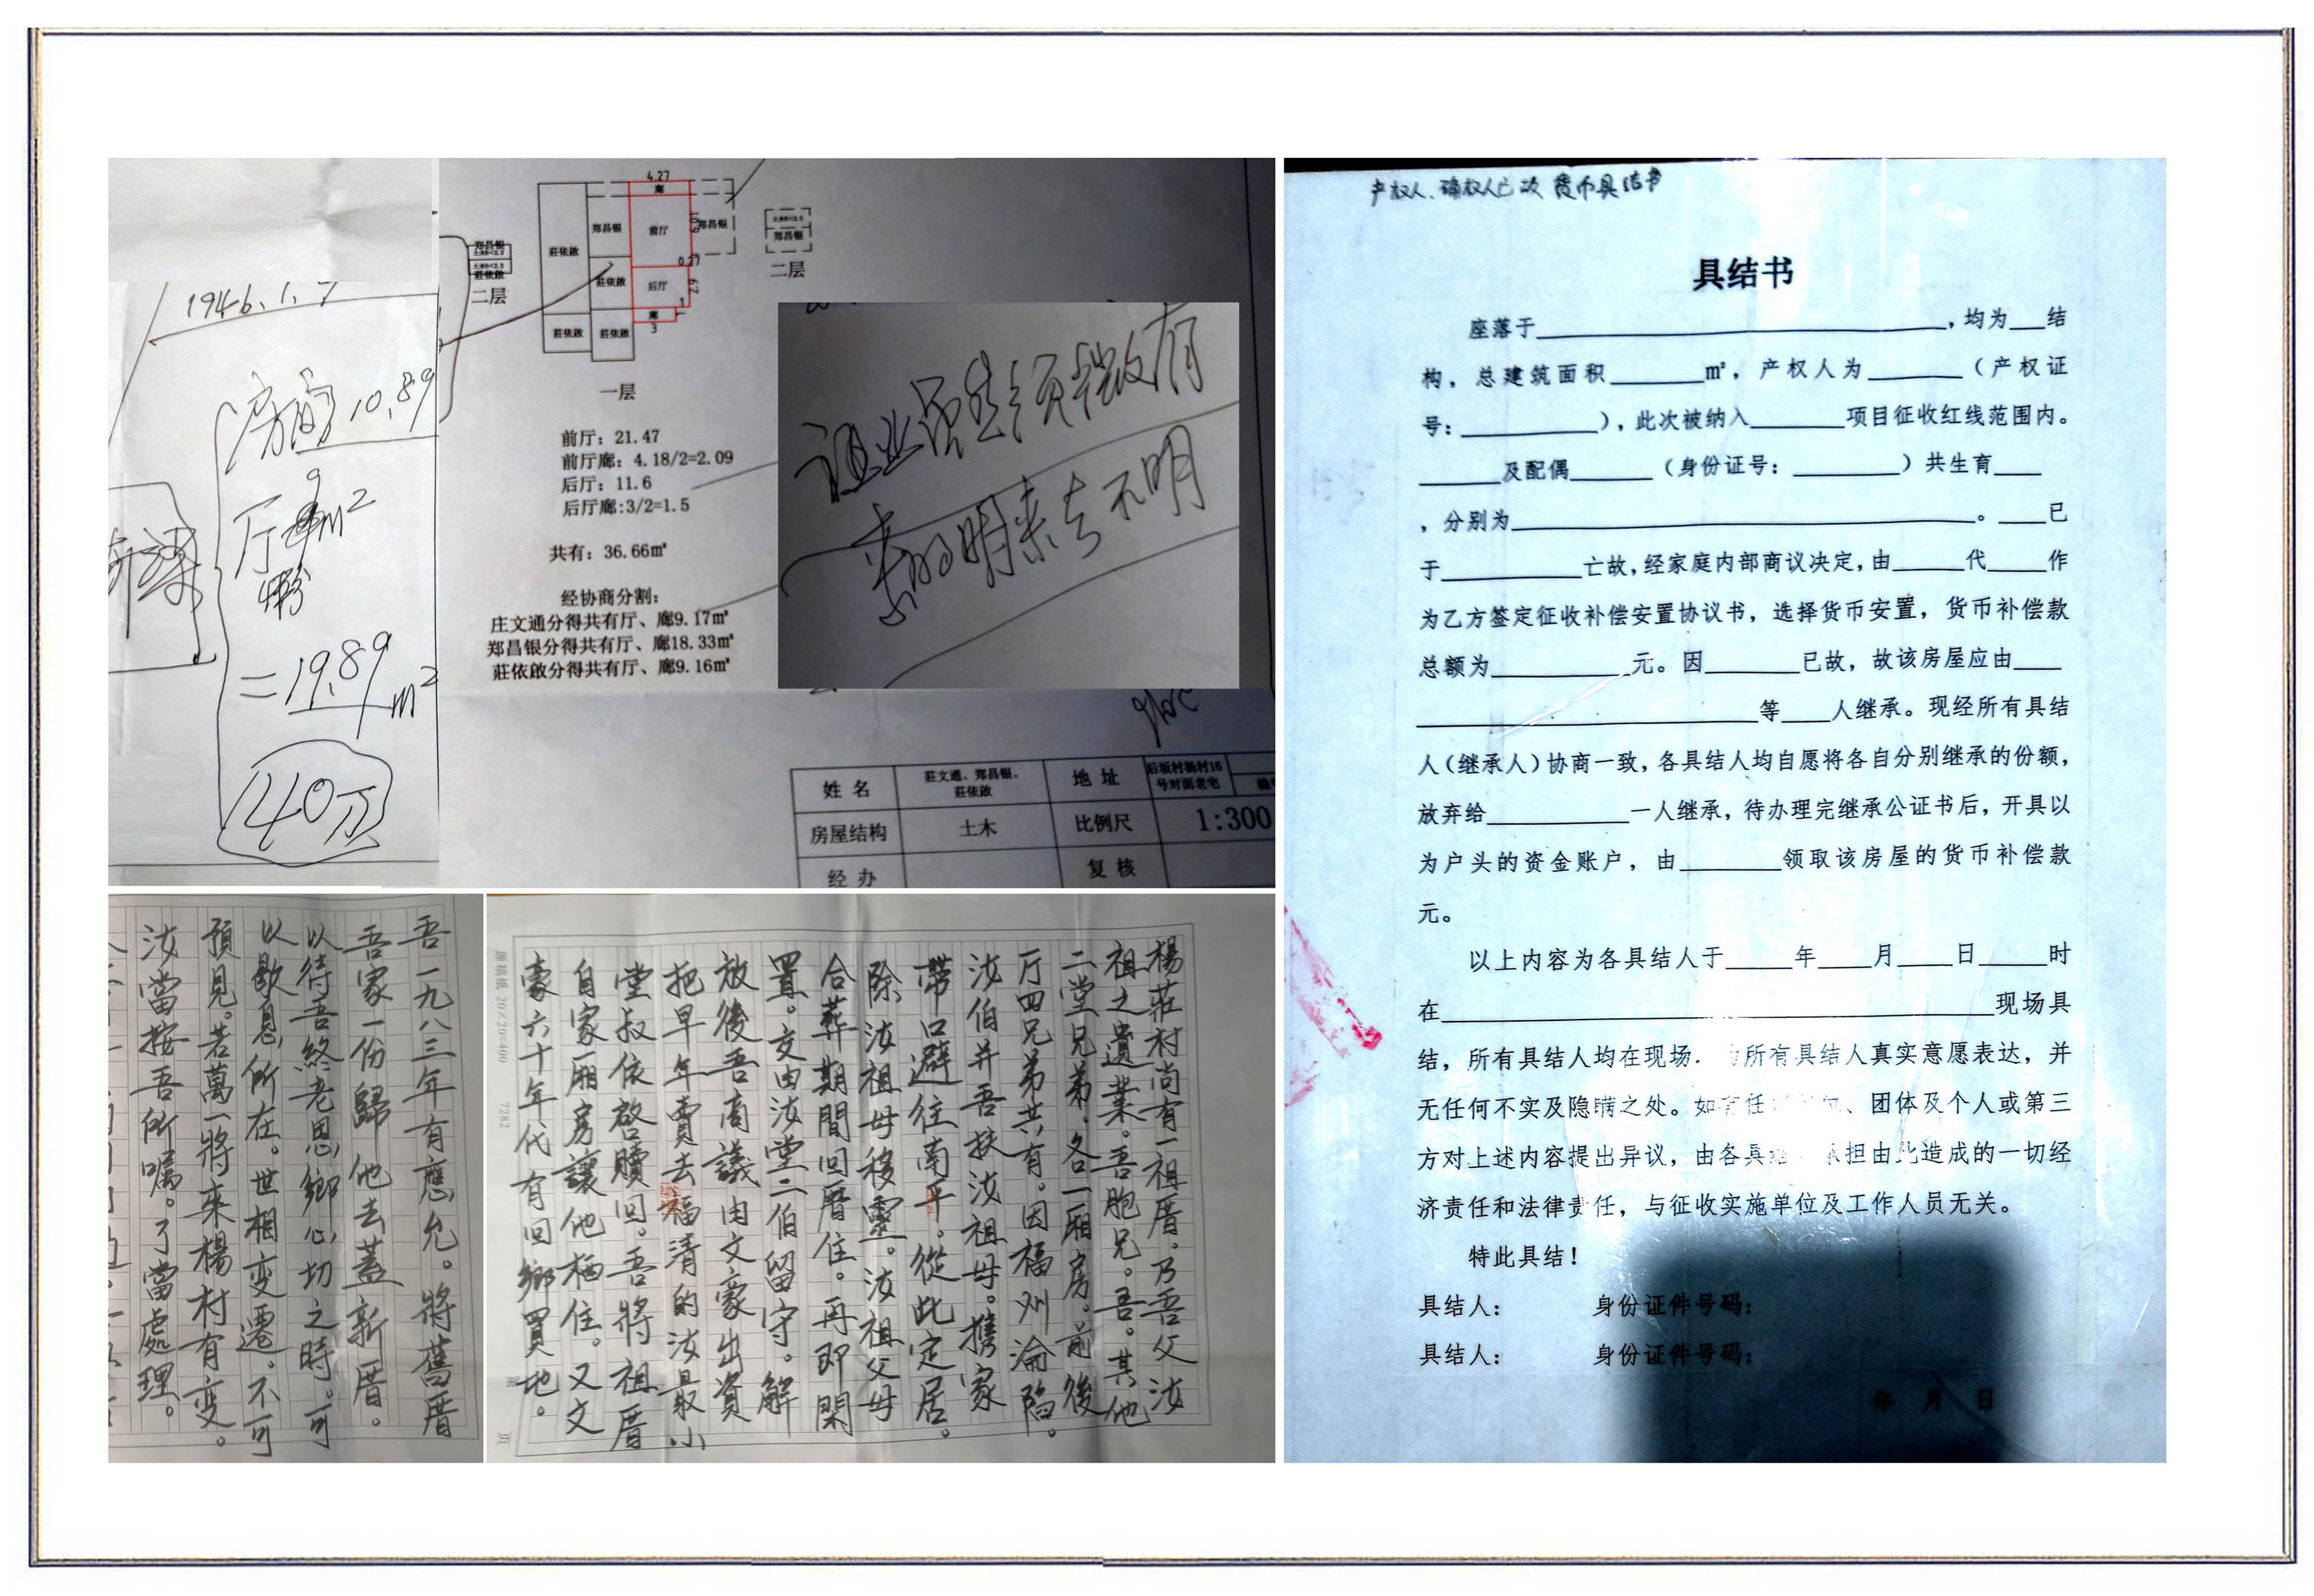 1946.1.7
房间10.89
厅 9 m²
=19.89 m²
140万
4.27
廊
郑昌银
前厅
郑昌银
莊依啟
0.27
莊依啟
后厅
2.9
廊
1
3
莊依啟
莊依啟
郑昌银
莊依啟
二层
郑昌银
二层
一层
前厅：21.47
前厅廊：4.18/2=2.09
后厅：11.6
后厅廊:3/2=1.5
共有：36.66㎡
经协商分割：
庄文通分得共有厅、廊9.17㎡
郑昌银分得共有厅、廊18.33㎡
莊依啟分得共有厅、廊9.16㎡
来去不明
姓名 莊文通、郑昌银、莊依啟 地址 后坂村杨村16号对面老宅
房屋结构 土木 比例尺 1:300
经办 复核
吾一九八三年有應允。將舊厝
吾家一份歸他去蓋新厝。
以待吾終老思鄉心切之時。可
以歇息所在。世相变遷。不可
預見。若萬一將來楊村有变。
汝當按吾所囑。了當處理。
楊莊村尚有一祖厝。乃吾父汝
祖之遺業。吾胞兄。吾。其他
二堂兄弟。各一廂房。前後
厅四兄弟共有。因福州淪陷。
汝伯并吾扶汝祖母。携家
帶口避往南平。從此定居。
除汝祖母移靈。汝祖父母
合葬期間回厝住。再即閑
置。交由汝堂二伯留守。解
放後吾商議由文豪出資
把早年賣去福清的汝最小
堂叔依啓贖回。吾將祖厝
自家廂房讓他栖住。又文
豪六十年代有回鄉買地。
原稿紙 20×20=400 7282 页
产权人、确权人已故 货币具结书
具结书
座落于，均为 结
构，总建筑面积 ㎡，产权人为 （产权证
号： ），此次被纳入 项目征收红线范围内。
及配偶 （身份证号： ）共生育
，分别为 。 已
于 亡故，经家庭内部商议决定，由 代 作
为乙方签定征收补偿安置协议书，选择货币安置，货币补偿款
总额为 元。因 已故，故该房屋应由
等 人继承。现经所有具结
人（继承人）协商一致，各具结人均自愿将各自分别继承的份额，
放弃给 一人继承，待办理完继承公证书后，开具以
为户头的资金账户，由 领取该房屋的货币补偿款
元。
以上内容为各具结人于 年 月 日 时
在 现场具
结，所有具结人均在现场. 所有具结人真实意愿表达，并
无任何不实及隐瞒之处。如有任 、团体及个人或第三
方对上述内容提出异议，由各具结 承担由此造成的一切经
济责任和法律责任，与征收实施单位及工作人员无关。
特此具结！
具结人： 身份证件号码：
具结人： 身份证件号码：
年 月 日